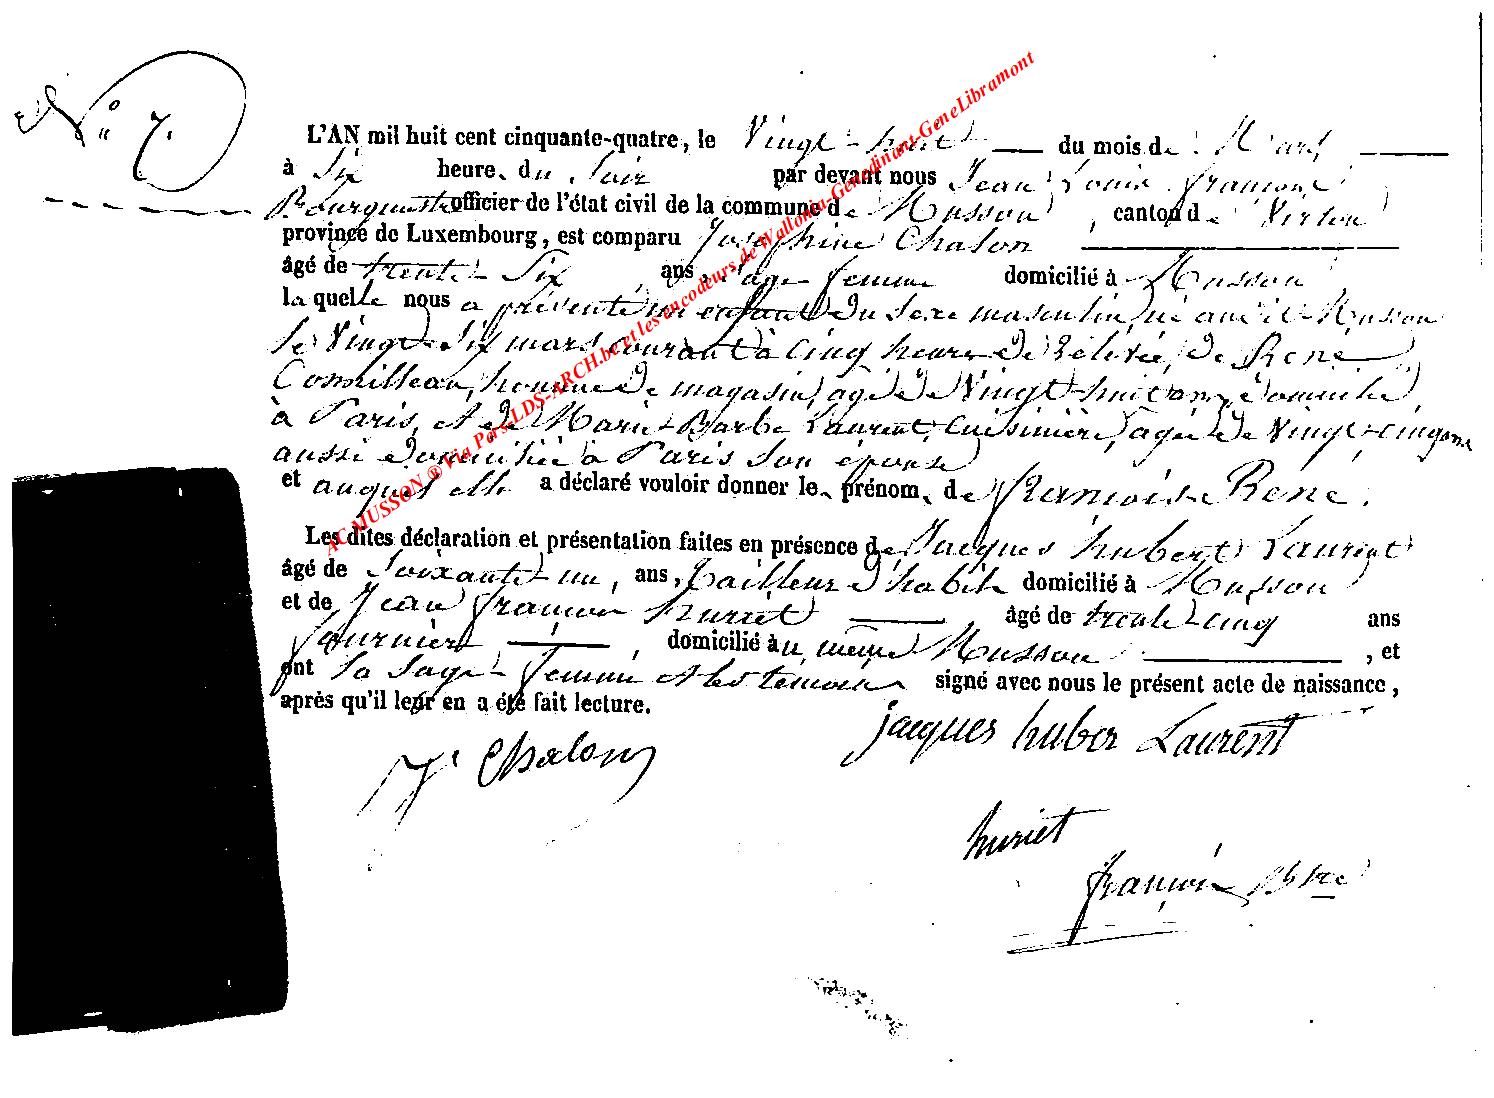 N° 7.
L'AN mil huit cent cinquante-quatre, le Vingt-huit du mois de Mars
à Six heure, du Soir par devant nous Jean Louis François
Bourguet officier de l'état civil de la commune de Musson, canton de Virton
province de Luxembourg, est comparu Josephine Chalon
âgé de trente-Six ans, sage femme domicilié à Musson
la quelle nous a présenté un enfant du sexe masculin, né au dit Musson
le Vingt-Six mars courant à cinq heures de rélevée, de René
homme de magasin, agé de Vingt-huit ans, domicilié
à Paris, et de Marie-Barbe Laurent, Cuisinière, agée de Vingt-cinq ans
aussi domiciliée à Paris son épouse
et auquel elle a déclaré vouloir donner le, prénom, de François René.
Les dites déclaration et présentation faites en présence de Jacques hubert Laurent
âgé de Soixante-un, ans, tailleur d'habits domicilié à Musson
et de Jean françois huriet âgé de trente-cinq ans
journier, domicilié au même Musson, et
ont la sage-femme et les témoins signé avec nous le présent acte de naissance,
après qu'il leur en a été fait lecture.
J. Chalon
jacques huber Laurent
huriet
françois
AC MUSSON ® Via Pers.LDS-ARCH.be et les encodeurs de Wallonia-Genedinant-GeneLibramont